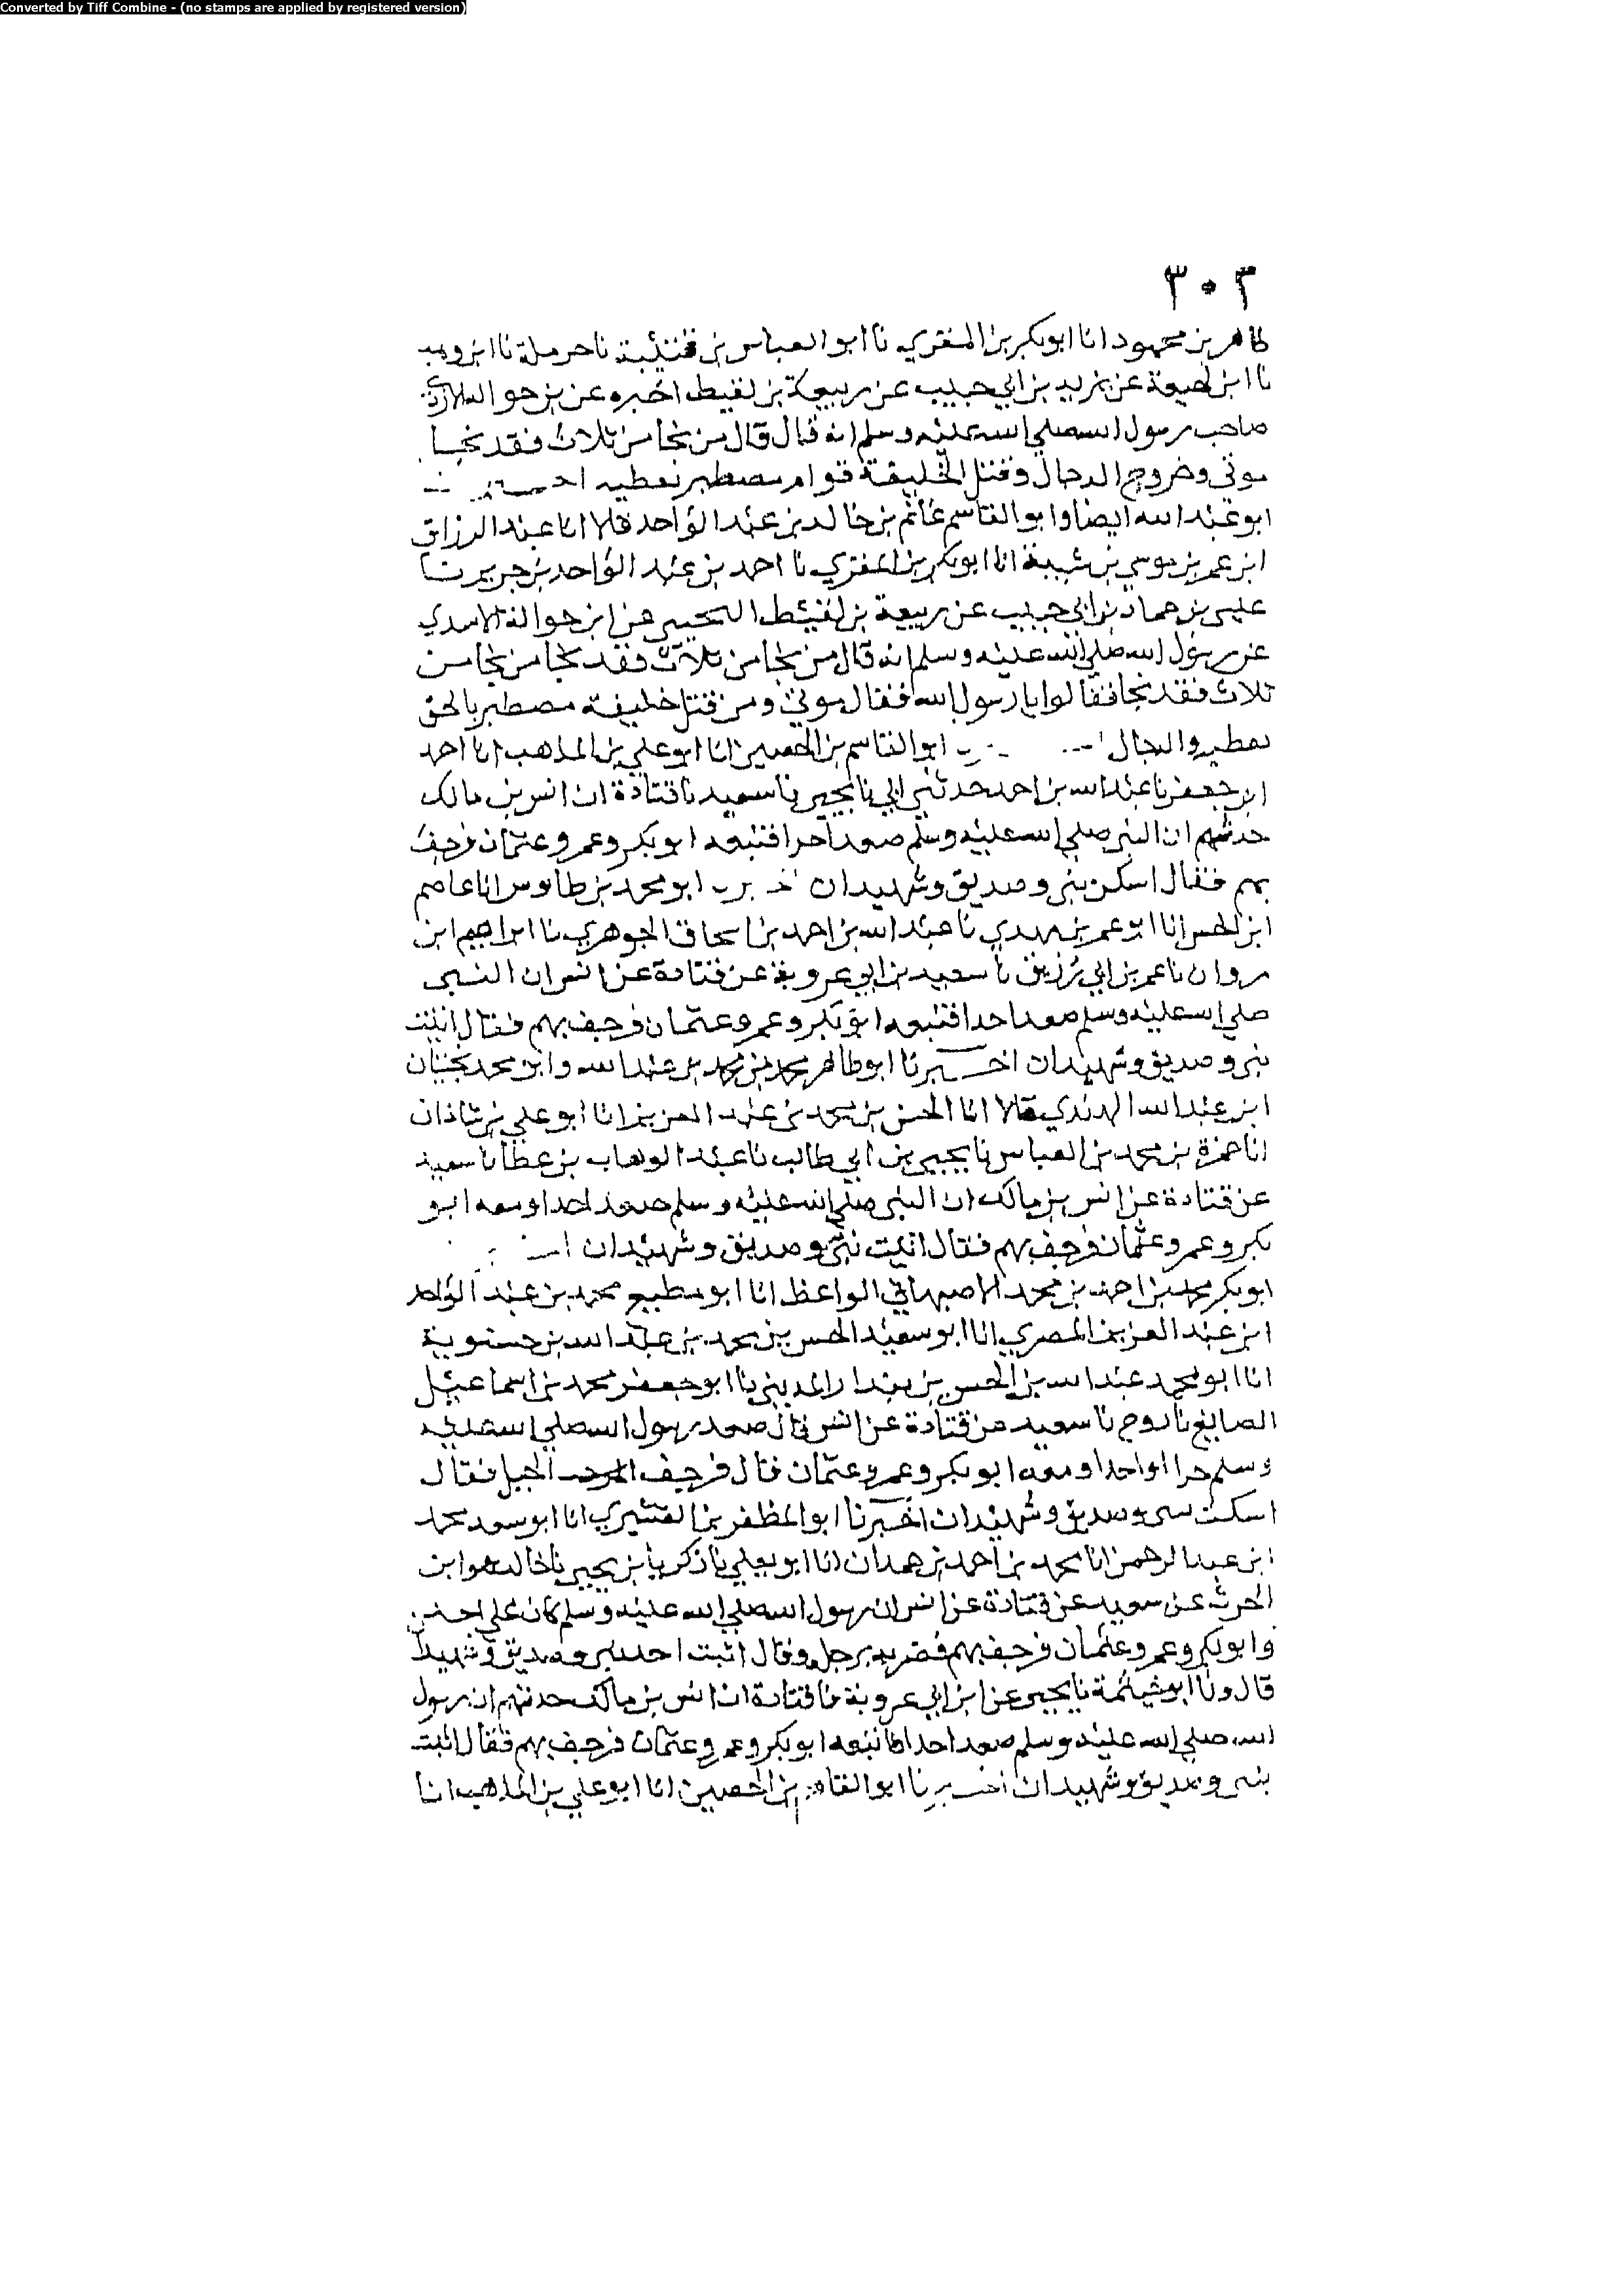 Converted by Tiff Combine - (no stamps are applied by registered version)
٣٠٣
طاهر بن محمود انا ابو بكر بن المقري نا ابو العباس بن قتيبة نا حرملة نا ابن وهب
نا ابن لهيعة عن يزيد بن ابي حبيب عن ربيعة بن لقيط اخبره عن بن حوالة الازدي
صاحب رسول الله صلي الله عليه وسلم انه قال قال من نجا من ثلاث فقد نجا
موتي وخروج الدجال وقتل الخليفة قوام مصطبر يعطيه
ابو عبد الله ايضا وابو القاسم غانم بن خالد بن عبد الواحد قالا انا عبد الرزاق
ابن عمر بن موسي بن شيبة انا ابو بكر بن المقري نا احمد بن عبد الواحد بن جرير نا
عيسي بن حماد بن ابي حبيب عن ربيعة بن لقيط التجيبي عن ابن حوالة الاسدي
عن رسول الله صلي الله عليه وسلم انه قال من نجا من ثلاث فقد نجا من نجا من
ثلاث فقد نجا فقالوا يا رسول الله فقال موتي ومن قتل خليفة مصطبر بالحق
يعطيه والدجال ابو القاسم بن الحصين انا ابو علي بن المذهب انا احمد
ابن جعفر نا عبد الله بن احمد حدثني ابي نا يحيي نا سعيد نا قتادة ان انس بن مالك
حدثهم ان النبي صلي الله عليه وسلم صعد احدا فتبعه ابو بكر وعمر وعثمان فرجف
بهم فقال اسكن نبي وصديق وشهيدان ابو محمد بن طاوس انا عاصم
ابن الحسن انا ابو عمر بن مهدي نا عبد الله بن احمد بن اسحاق الجوهري نا ابراهيم ابن
مروان نا عمر بن ابي رزيق نا سعيد بن ابي عروبة عن قتادة عن انس ان النبي
صلي الله عليه وسلم صعد احدا فتبعه ابو بكر وعمر وعثمان فرجف بهم فقال اثبت
نبي وصديق وشهيدان اخبرنا ابو طاهر محمد بن محمد بن عبد الله وابو محمد بختيار
ابن عبد الله الهندي قالا انا الحسن بن محمد بن عبد العزيز انا ابو علي بن شاذان
انا حمزة بن محمد بن العباس نا يحيي بن ابي طالب نا عبد الوهاب بن عطا نا سعيد
عن قتادة عن انس بن مالك ان النبي صلي الله عليه وسلم صعد احدا ومعه ابو
بكر وعمر وعثمان فرجف بهم فقال اثبت نبي وصديق وشهيدان
ابو بكر محمد بن احمد بن محمد الاصبهاني الواعظ انا ابو مطيع محمد بن عبد الواحد
ابن عبد العزيز المصري انا ابو سعيد الحسن بن محمد بن عبد الله بن حسنوية
انا ابو محمد عبد الله بن الحسن بن بندار المديني نا ابو جعفر محمد بن اسماعيل
الصايغ نا روح نا سعيد عن قتادة عن انس قال صعد رسول الله صلي الله عليه
وسلم حرا او احدا ومعه ابو بكر وعمر وعثمان قال فرجف الجبل فقال
اسكت نبي وصديق وشهيدان اخبرنا ابو المظفر بن القشيري انا ابو سعد محمد
ابن عبد الرحمن انا محمد بن احمد بن حمدان انا ابو يعلي نا زكريا بن يحيي نا خالد هو ابن
الحرث عن سعيد عن قتادة عن انس ان رسول الله صلي الله عليه وسلم كان علي
وابو بكر وعمر وعثمان فرجف بهم فضربه برجله وقال اثبت احد نبي وصديق وشهيدا
قال ونا ابو خيثمة نا يحيي عن ابن ابي عروبة نا قتادة ان انس بن مالك حدثهم ان رسول
الله صلي الله عليه وسلم صعد احدا فاتبعه ابو بكر وعمر وعثمان فرجف بهم فقال اثبت
نبي وصديق وشهيدان اخبرنا ابو القاسم بن الحصين انا ابو علي بن المذهب انا